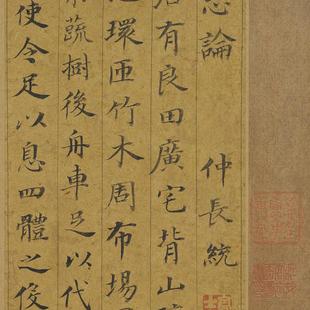 志論　仲長統
有良田廣宅背山
環匝竹木周布場
蔬樹後舟車足以代
使令足以息四體之役